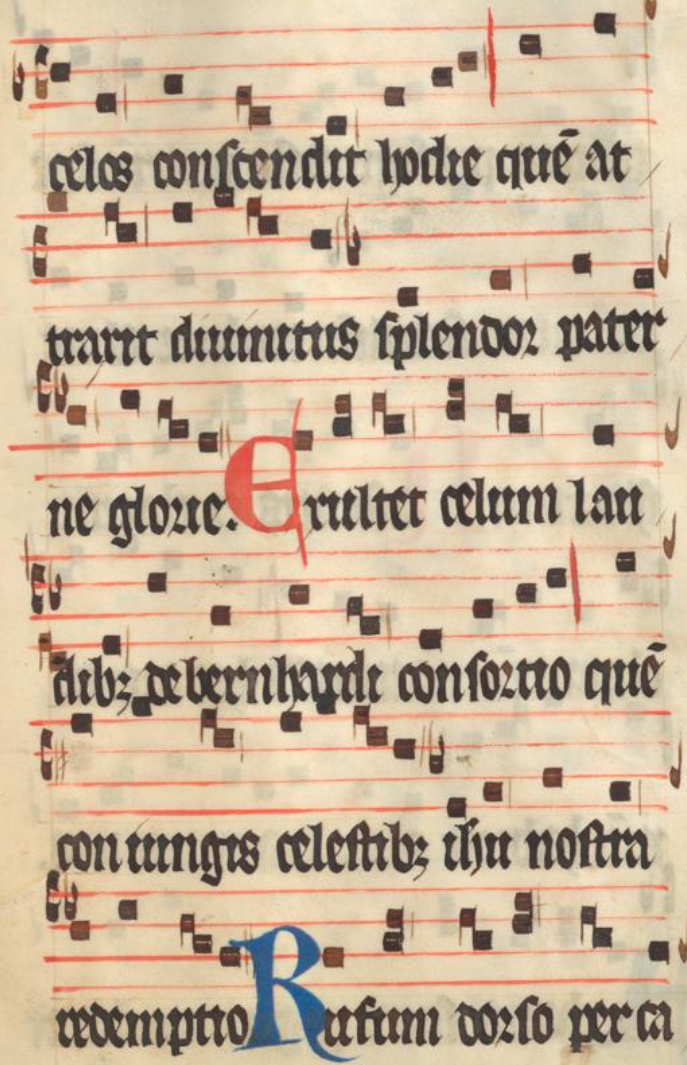 celos conscendit hodie quē at
traxit diuinitus splendor pater
ne glorie. Exultet celum lau
dibꝫ de bernhardi consortio quē
con iungis celestibꝫ ihu nostra
redemptio Rufum dorso per ca